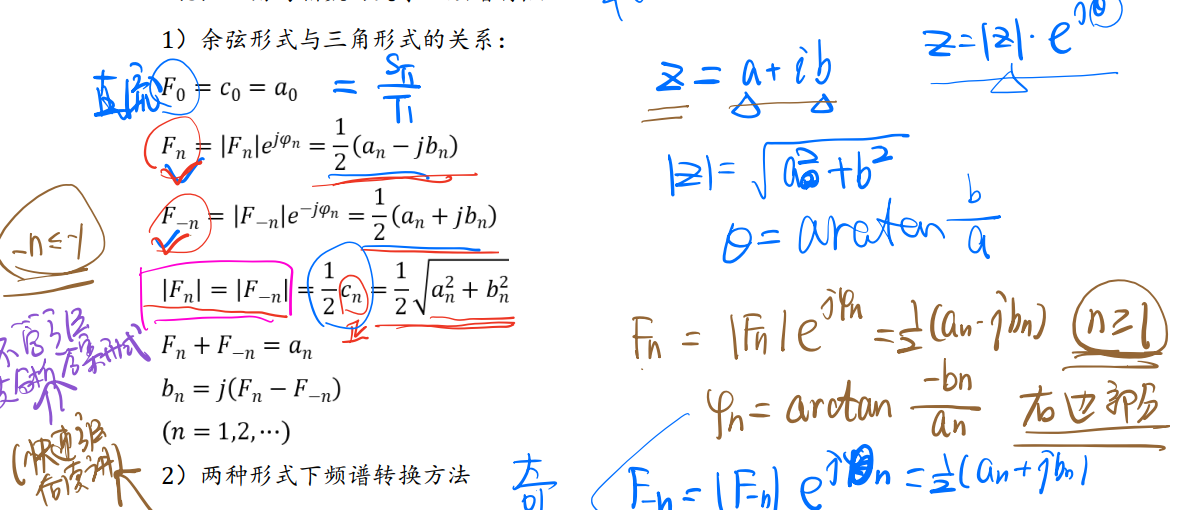 1）余弦形式与三角形式的关系：
直流 F₀ = c₀ = a₀ = S_T₁/T₁
Fₙ = |Fₙ|e^{jφₙ} = 1/2(aₙ − jbₙ)
F₋ₙ = |F₋ₙ|e^{−jφₙ} = 1/2(aₙ + jbₙ)
-n ≤ -1
|Fₙ| = |F₋ₙ| = 1/2 cₙ = 1/2 √(aₙ² + bₙ²)
Fₙ + F₋ₙ = aₙ
bₙ = j(Fₙ − F₋ₙ)
(n = 1,2,⋯)
2）两种形式下频谱转换方法
z = a + ib
z = |z| · e^{jθ}
|z| = √(a² + b²)
θ = arctan b/a
Fₙ = |Fₙ| e^{jφₙ} = 1/2(aₙ - jbₙ) n ≥ 1
φₙ = arctan -bₙ/aₙ 右边部分
F₋ₙ = |F₋ₙ| e = 1/2(aₙ + jbₙ)